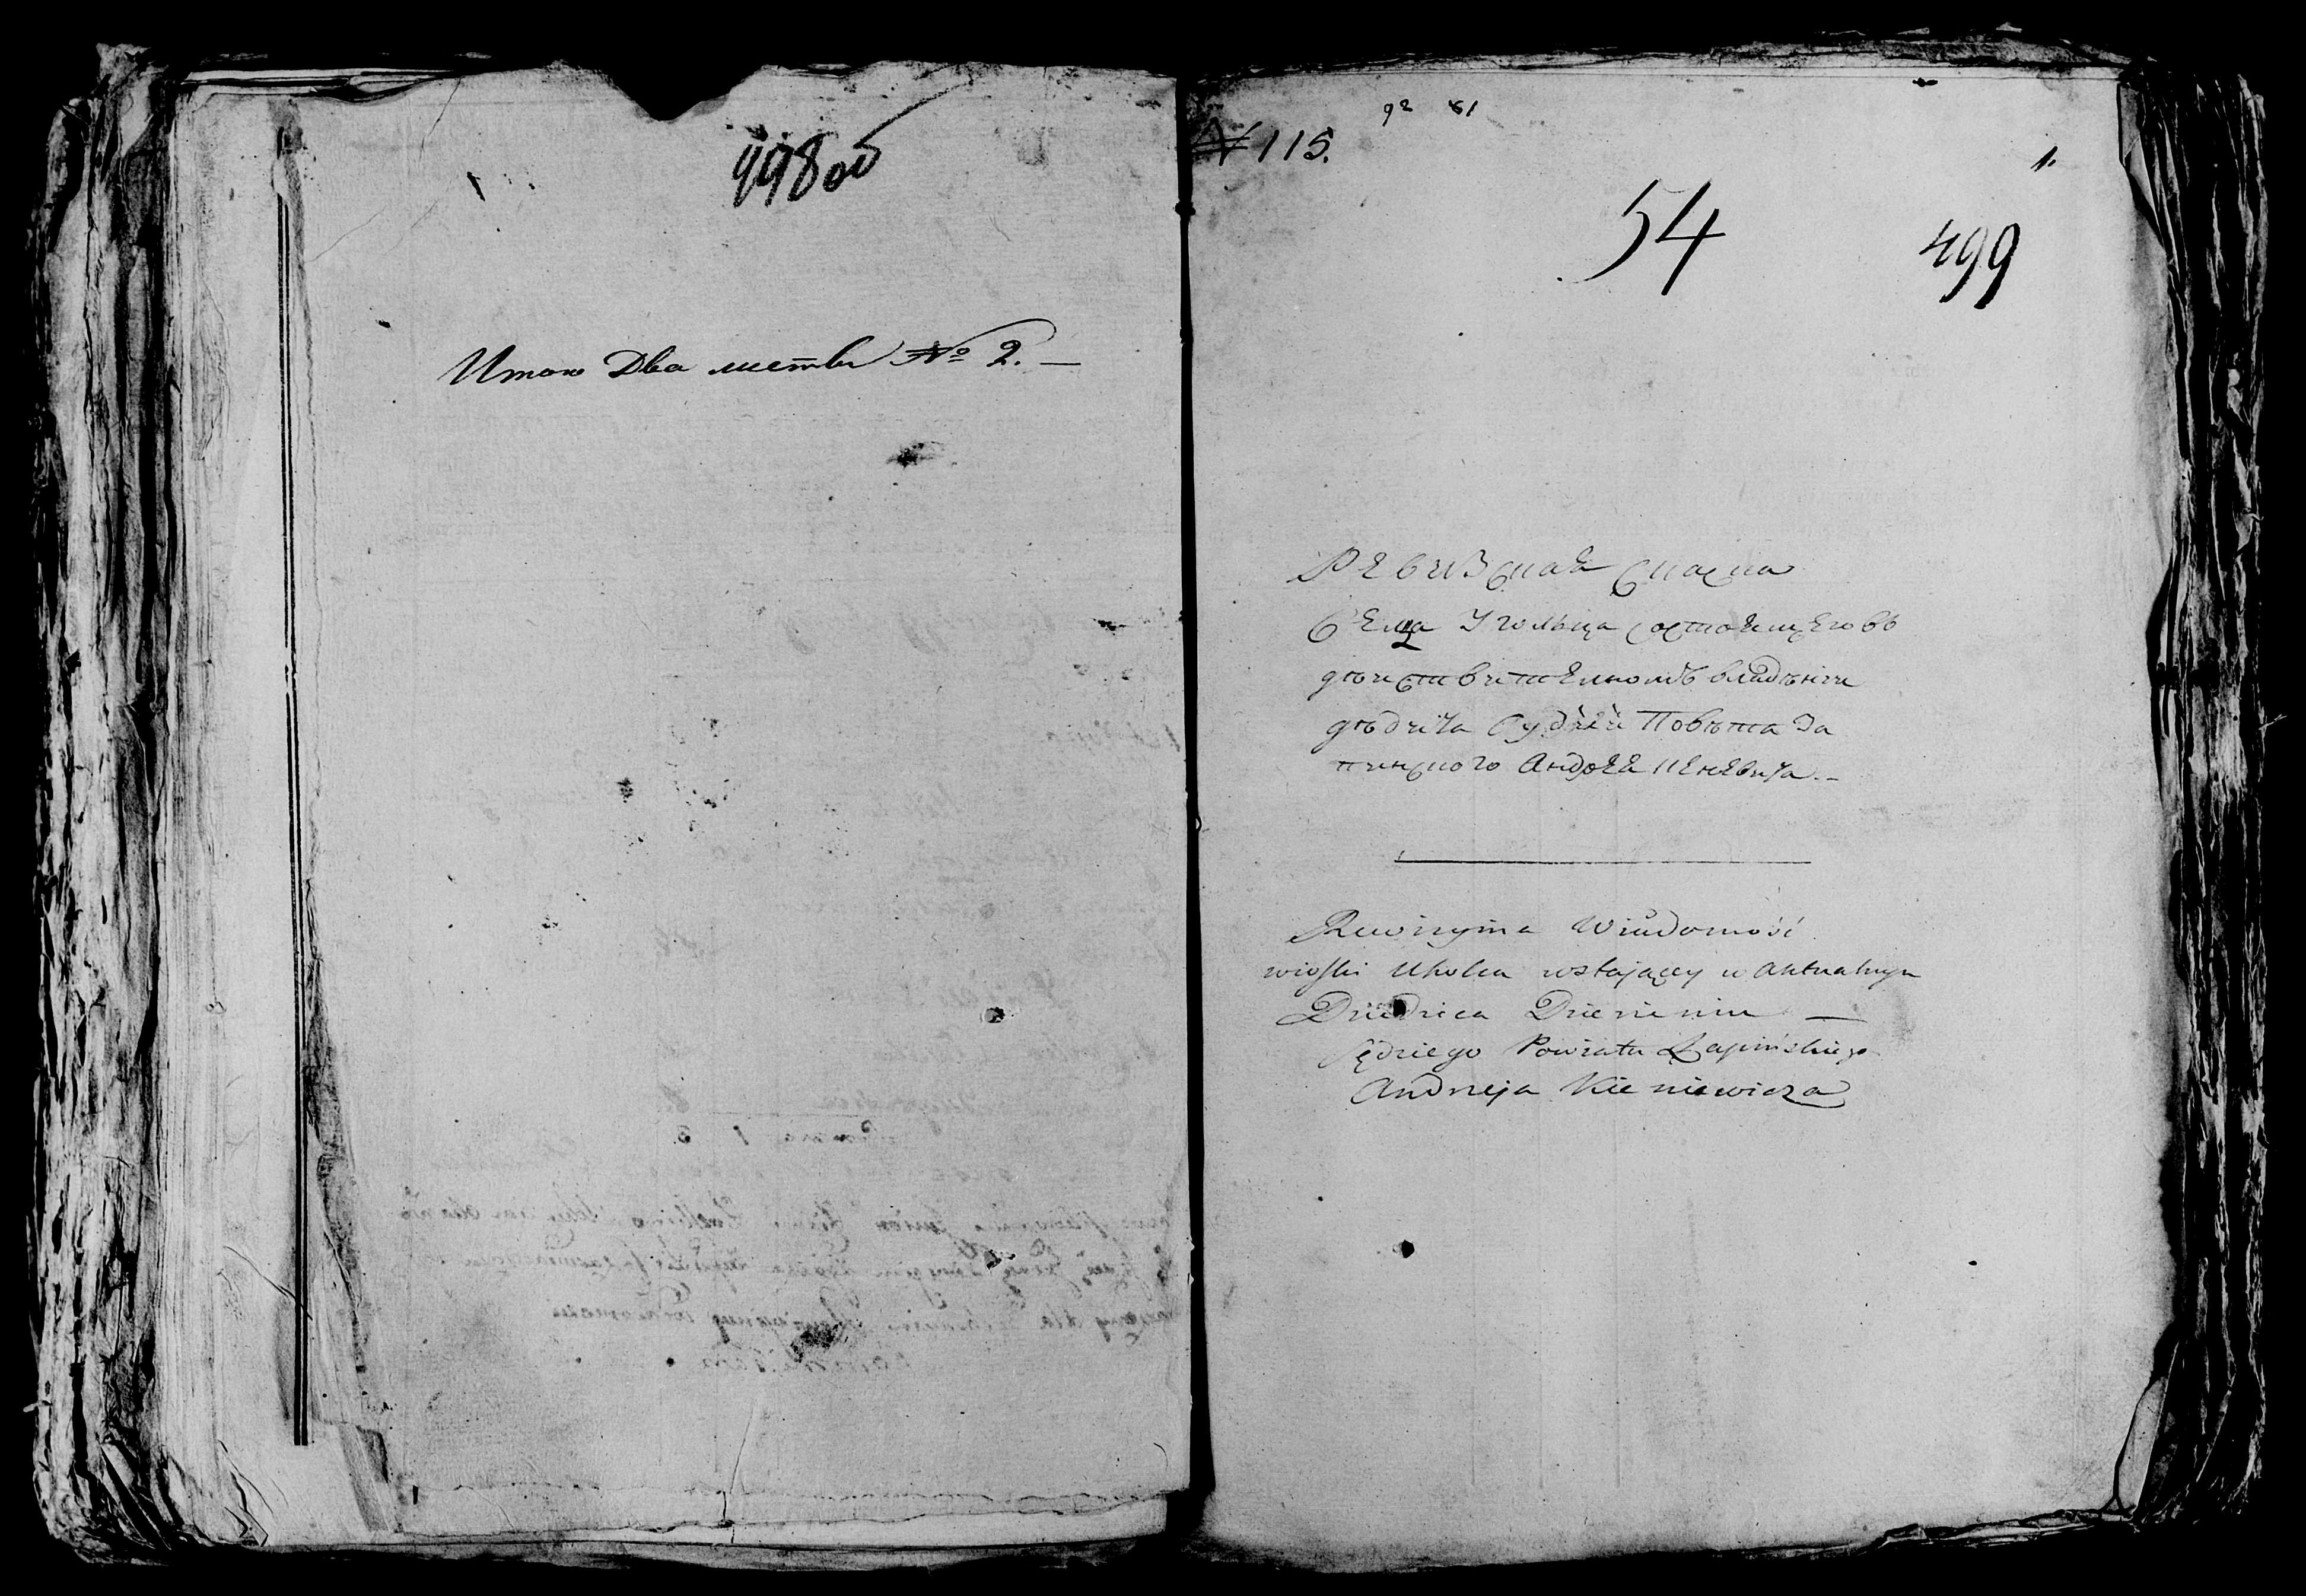 498об
Итого Два листы № 2. —
92 61
№ 115.
1.
54
499
Ревизская сказка
Селца Угольца состоящего въ
дѣйствителномъ владѣнiи
дѣдича Судьи Повѣта За
пинского Андрея Кеневича. -
Rewizyina Wiadomość
wioski Uholca zostającey w aktualnym
Dziedzica Dzierżeniu —
Sędziego Powiatu Zapińskiego
Andrzeja Kieniewicza